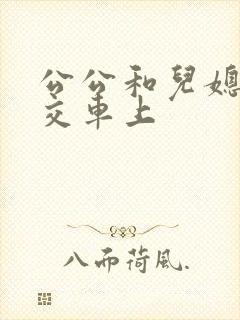 公公和兒媳
交車上
八而荷風.